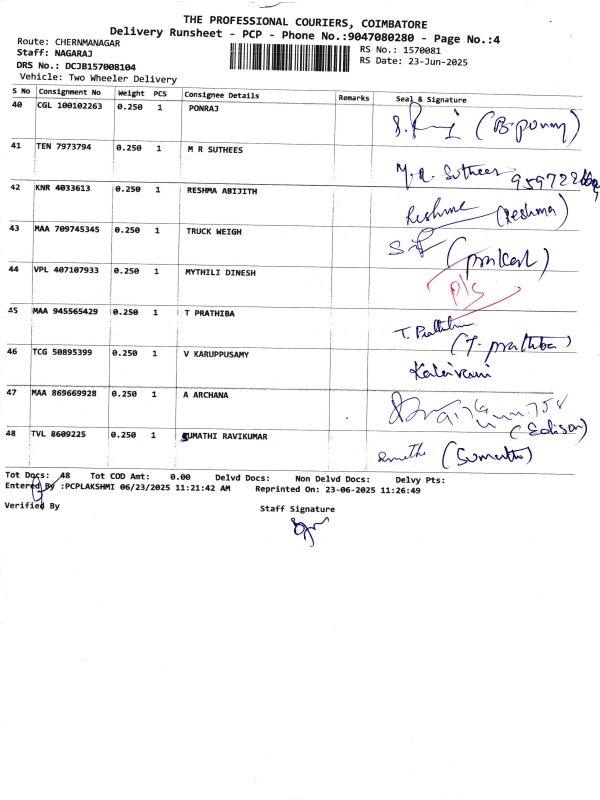 THE PROFESSIONAL COURIERS, COIMBATORE
Delivery Runsheet - PCP - Phone No.:9047080280 - Page No.:4
Route: CHERNMANAGAR
Staff: NAGARAJ
RS No.: 1570081
DRS No.: DCJB157008104
RS Date: 23-Jun-2025
Vehicle: Two Wheeler Delivery
S No Consignment No Weight PCS Consignee Details Remarks Seal & Signature
40 CGL 100102263 0.250 1 PONRAJ
41 TEN 7973794 0.250 1 M R SUTHEES
M.R. Suthees
42 KNR 4033613 0.250 1 RESHMA ABIJITH
Reshma (Reshma)
43 MAA 709745345 0.250 1 TRUCK WEIGH
44 VPL 407107933 0.250 1 MYTHILI DINESH
P/S
45 MAA 945565429 0.250 1 T PRATHIBA
T. Prathiba
(T. prathiba)
46 TCG 50895399 0.250 1 V KARUPPUSAMY
Kalaivani
47 MAA 869669928 0.250 1 A ARCHANA
(Edison)
48 TVL 8609225 0.250 1 SUMATHI RAVIKUMAR
Tot Docs: 48 Tot COD Amt: 0.00 Delvd Docs: Non Delvd Docs: Delvy Pts:
Entered By :PCPLAKSHMI 06/23/2025 11:21:42 AM Reprinted On: 23-06-2025 11:26:49
Verified By
Staff Signature